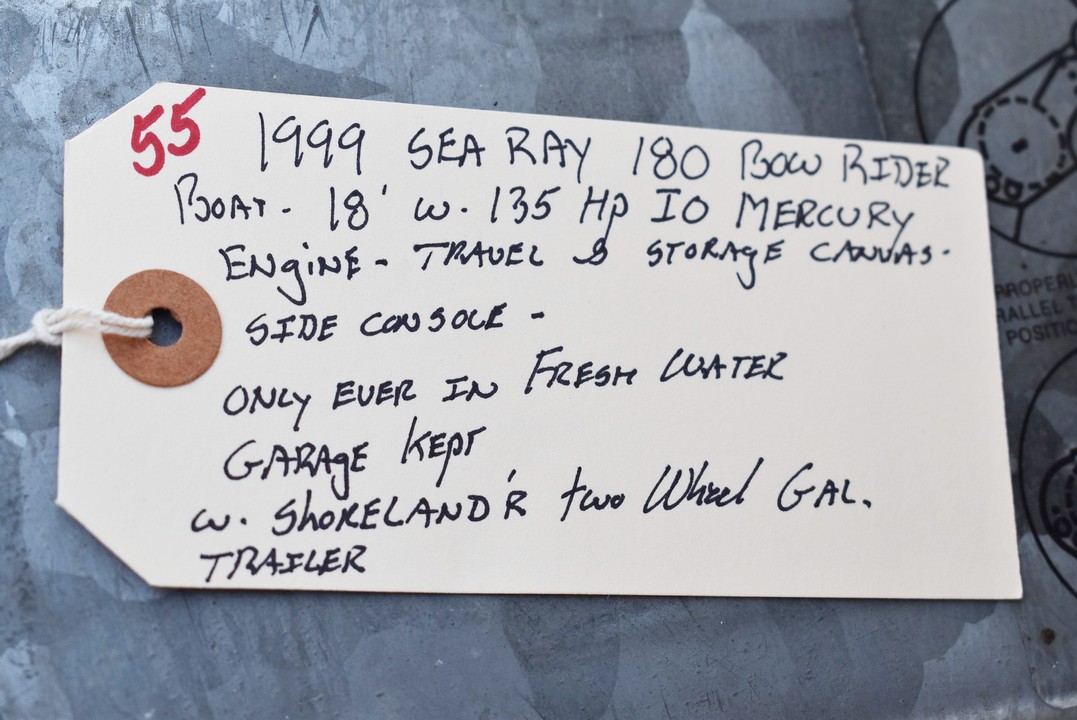 55 1999 SEA RAY 180 BOW RIDER
BOAT - 18' W. 135 Hp IO MERCURY
ENgiNE - TRAVEL & STORAgE CANVAS -
SIDE CONSOLE -
ONLY EVER IN FRESH WATER
GARAgE KEPT
W. ShORELAND'R two Wheel GAL.
TRAILER
PARALLEL
POSITIO